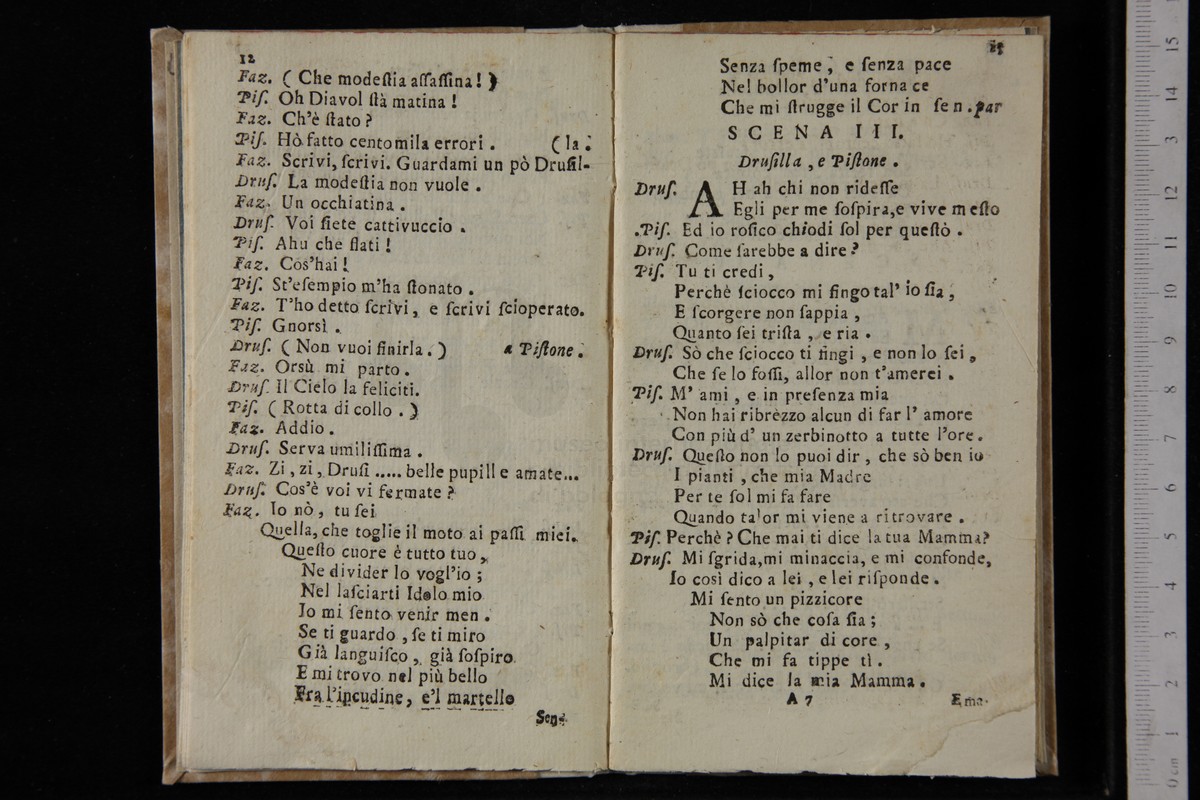 12
Faz. ( Che modeſtia aſſaſſina! )
Piſ. Oh Diavol ſtà matina !
Faz. Ch'è ſtato ?
Piſ. Hò fatto centomila errori . ( la .
Faz. Scrivi, ſcrivi. Guardami un pò Druſil-
Druſ. La modeſtia non vuole .
Faz. Un occhiatina .
Druſ. Voi ſiete cattivuccio .
Piſ. Ahu che flati !
Faz. Cos'hai !
Piſ. St'eſempio m'ha ſtonato .
Faz. T'ho detto ſcrivi, e ſcrivi ſcioperato.
Piſ. Gnorsì .
Druſ. ( Non vuoi finirla . ) a Piſtone .
Faz. Orsù mi parto .
Druſ. Il Cielo la feliciti.
Piſ. ( Rotta di collo . )
Faz. Addio .
Druſ. Serva umiliſſima .
Faz. Zi , zi , Druſi ..... belle pupille amate...
Druſ. Cos'è voi vi fermate ?
Faz. Io nò , tu ſei
Quella, che toglie il moto ai paſſi miei.
Queſto cuore è tutto tuo ,
Ne divider lo vogl'io ;
Nel laſciarti Idolo mio
Io mi ſento venir men .
Se ti guardo , ſe ti miro
Già languiſco , già ſoſpiro
E mi trovo nel più bello
Fra l'incudine, e'l martello
Sen-
Senza ſpeme , e ſenza pace
Nel bollor d'una fornace
Che mi ſtrugge il Cor in ſen . par
SCENA III.
Druſilla , e Piſtone .
Druſ. AH ah chi non rideſſe
Egli per me ſoſpira,e vive meſto
.Piſ. Ed io roſico chiodi ſol per queſtò .
Druſ. Come ſarebbe a dire ?
Piſ. Tu ti credi ,
Perchè ſciocco mi fingo tal' io ſia ,
E ſcorgere non ſappia ,
Quanto ſei triſta , e ria .
Druſ. Sò che ſciocco ti fingi , e non lo ſei ,
Che ſe lo foſſi, allor non t'amerei .
Piſ. M' ami , e in preſenza mia
Non hai ribrèzzo alcun di far l' amore
Con più d' un zerbinotto a tutte l'ore .
Druſ. Queſto non lo puoi dir , che sò ben io
I pianti , che mia Madre
Per te ſol mi fa fare
Quando talor mi viene a ritrovare .
Piſ. Perchè ? Che mai ti dice la tua Mamma?
Druſ. Mi ſgrida,mi minaccia, e mi confonde,
Io così dico a lei , e lei riſponde .
Mi ſento un pizzicore
Non sò che coſa ſia ;
Un palpitar di core ,
Che mi fa tippe tì .
Mi dice la mia Mamma .
A 7 E ma-